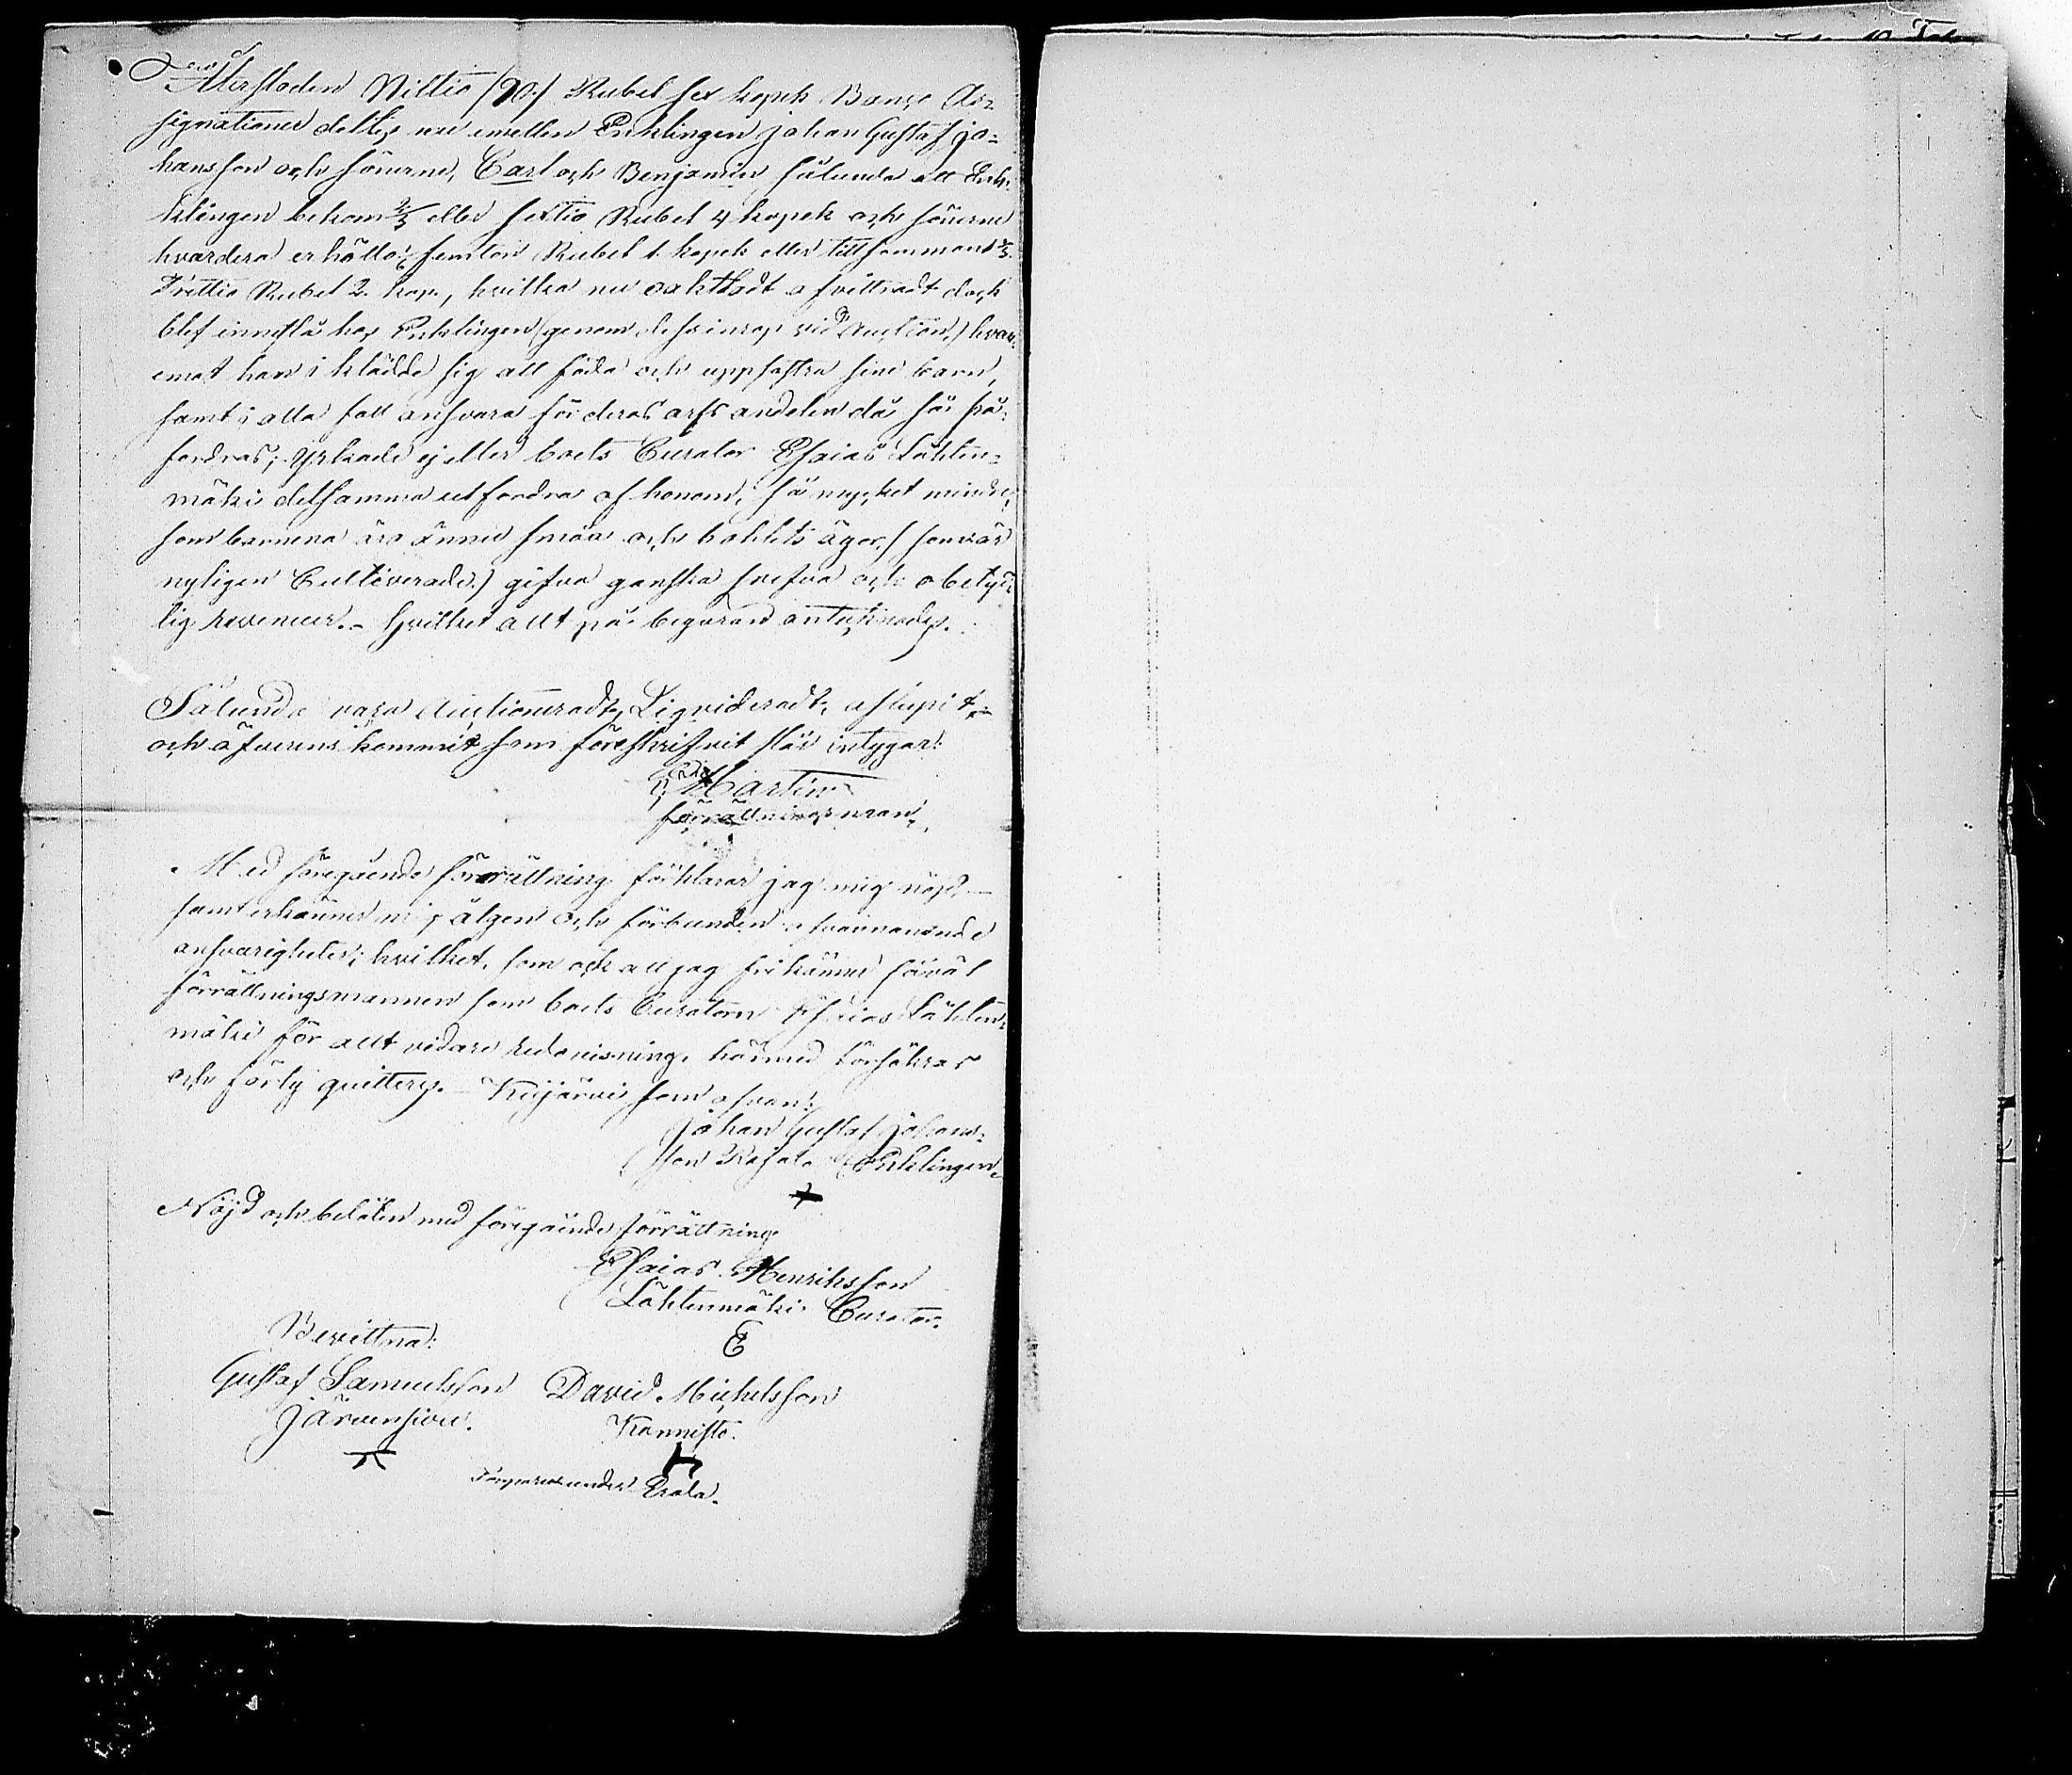 Återstoden Nittio (90.) Rubel sex kopek Banco As-
signationer deltes nu emellan Enklingen Johan Gustaf Jo-
hansson och sönerne, Carl och Benjamin sålunda att Enk-
klingen bekom 2/3 eller sextio Rubel 4 kopek och sönerne
hvardera erhöllo femton Rubel 1. kopek eller tillsammans 1/3.
Trettio Rubel 2. kop., hvilka nu oaktadt afvittradt dock
blef innestå hos Enklingen (genom dess inrop vid Auction,) hvar-
emot han iklädde sig att föda och uppfostra sine barn,
samt i alla fall ansvara för deras arfs andelen då så på-
fordras; Yrkade ej eller boets Curator Esaias Lähten-
mäki detsamma utfordra af honom, så mycket mindre,
som barnena äro ännu småa och bohlets ägor (som är
nyligen Cultiverade) gifva ganska svaga och obetyd-
lig revenuer. - Hvilket allt på begäran antecknades.
Sålunda vara Auctioneradt, Liqvideradt, aflupit
och öfverens kommit som föreskrifvit står intygar:
Martin
förrättningsman.
Med föregående förrättning förklarar jag mig nöjd,
samt erkänner mig ålagen och förbunden ofvannämnde
ansvarigheter; hvilket, som och att jag frikänner såväl
förrättningsmannen som boets Curatorn Esaias Lähten-
mäki för allt vidare redovisning, härmed försäkras
och förty quitteras. - Kiijärvi som ofvan:
Johan Gustaf Johans-
son Enklingen.
Nöjd och belåten med föregående förrättning
Esaias Henriksson
Lähtenmäki Curator.
E
Bevittna:
Gustaf Samuelsson David Michelsson
Järvensivu. Kannisto.
Torpare under Erala.